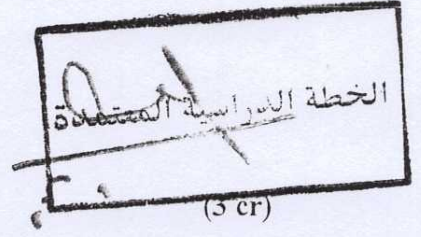 الخطة الدراسية المعتمدة
(3 cr)